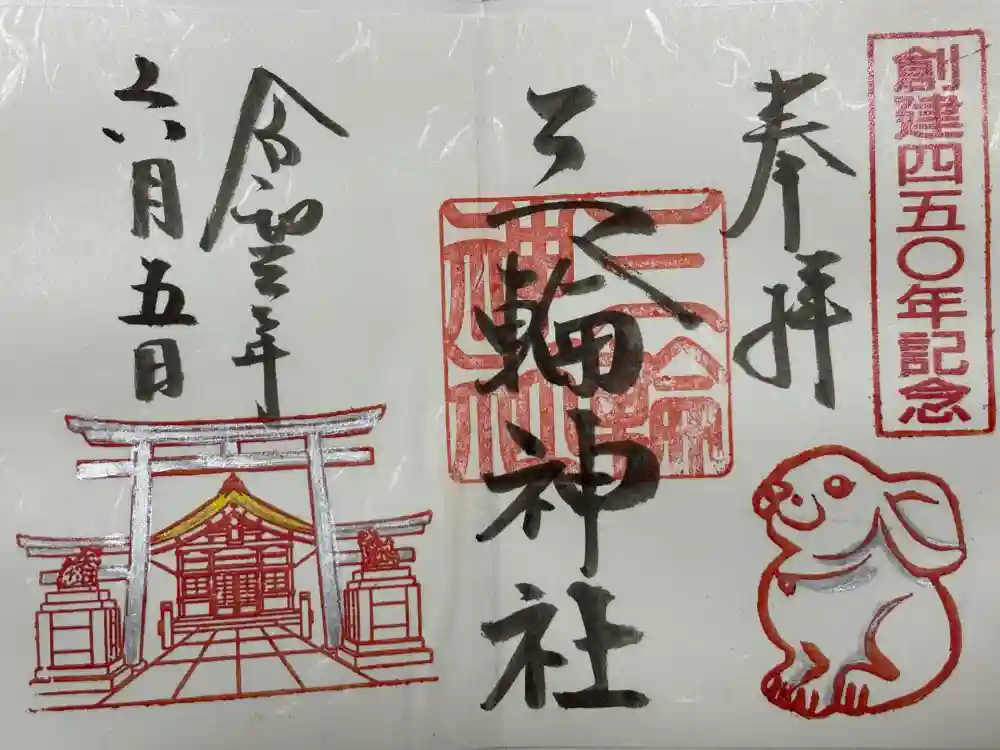 創建四五〇年記念
奉拝
三輪神社
令和三年
六月五日